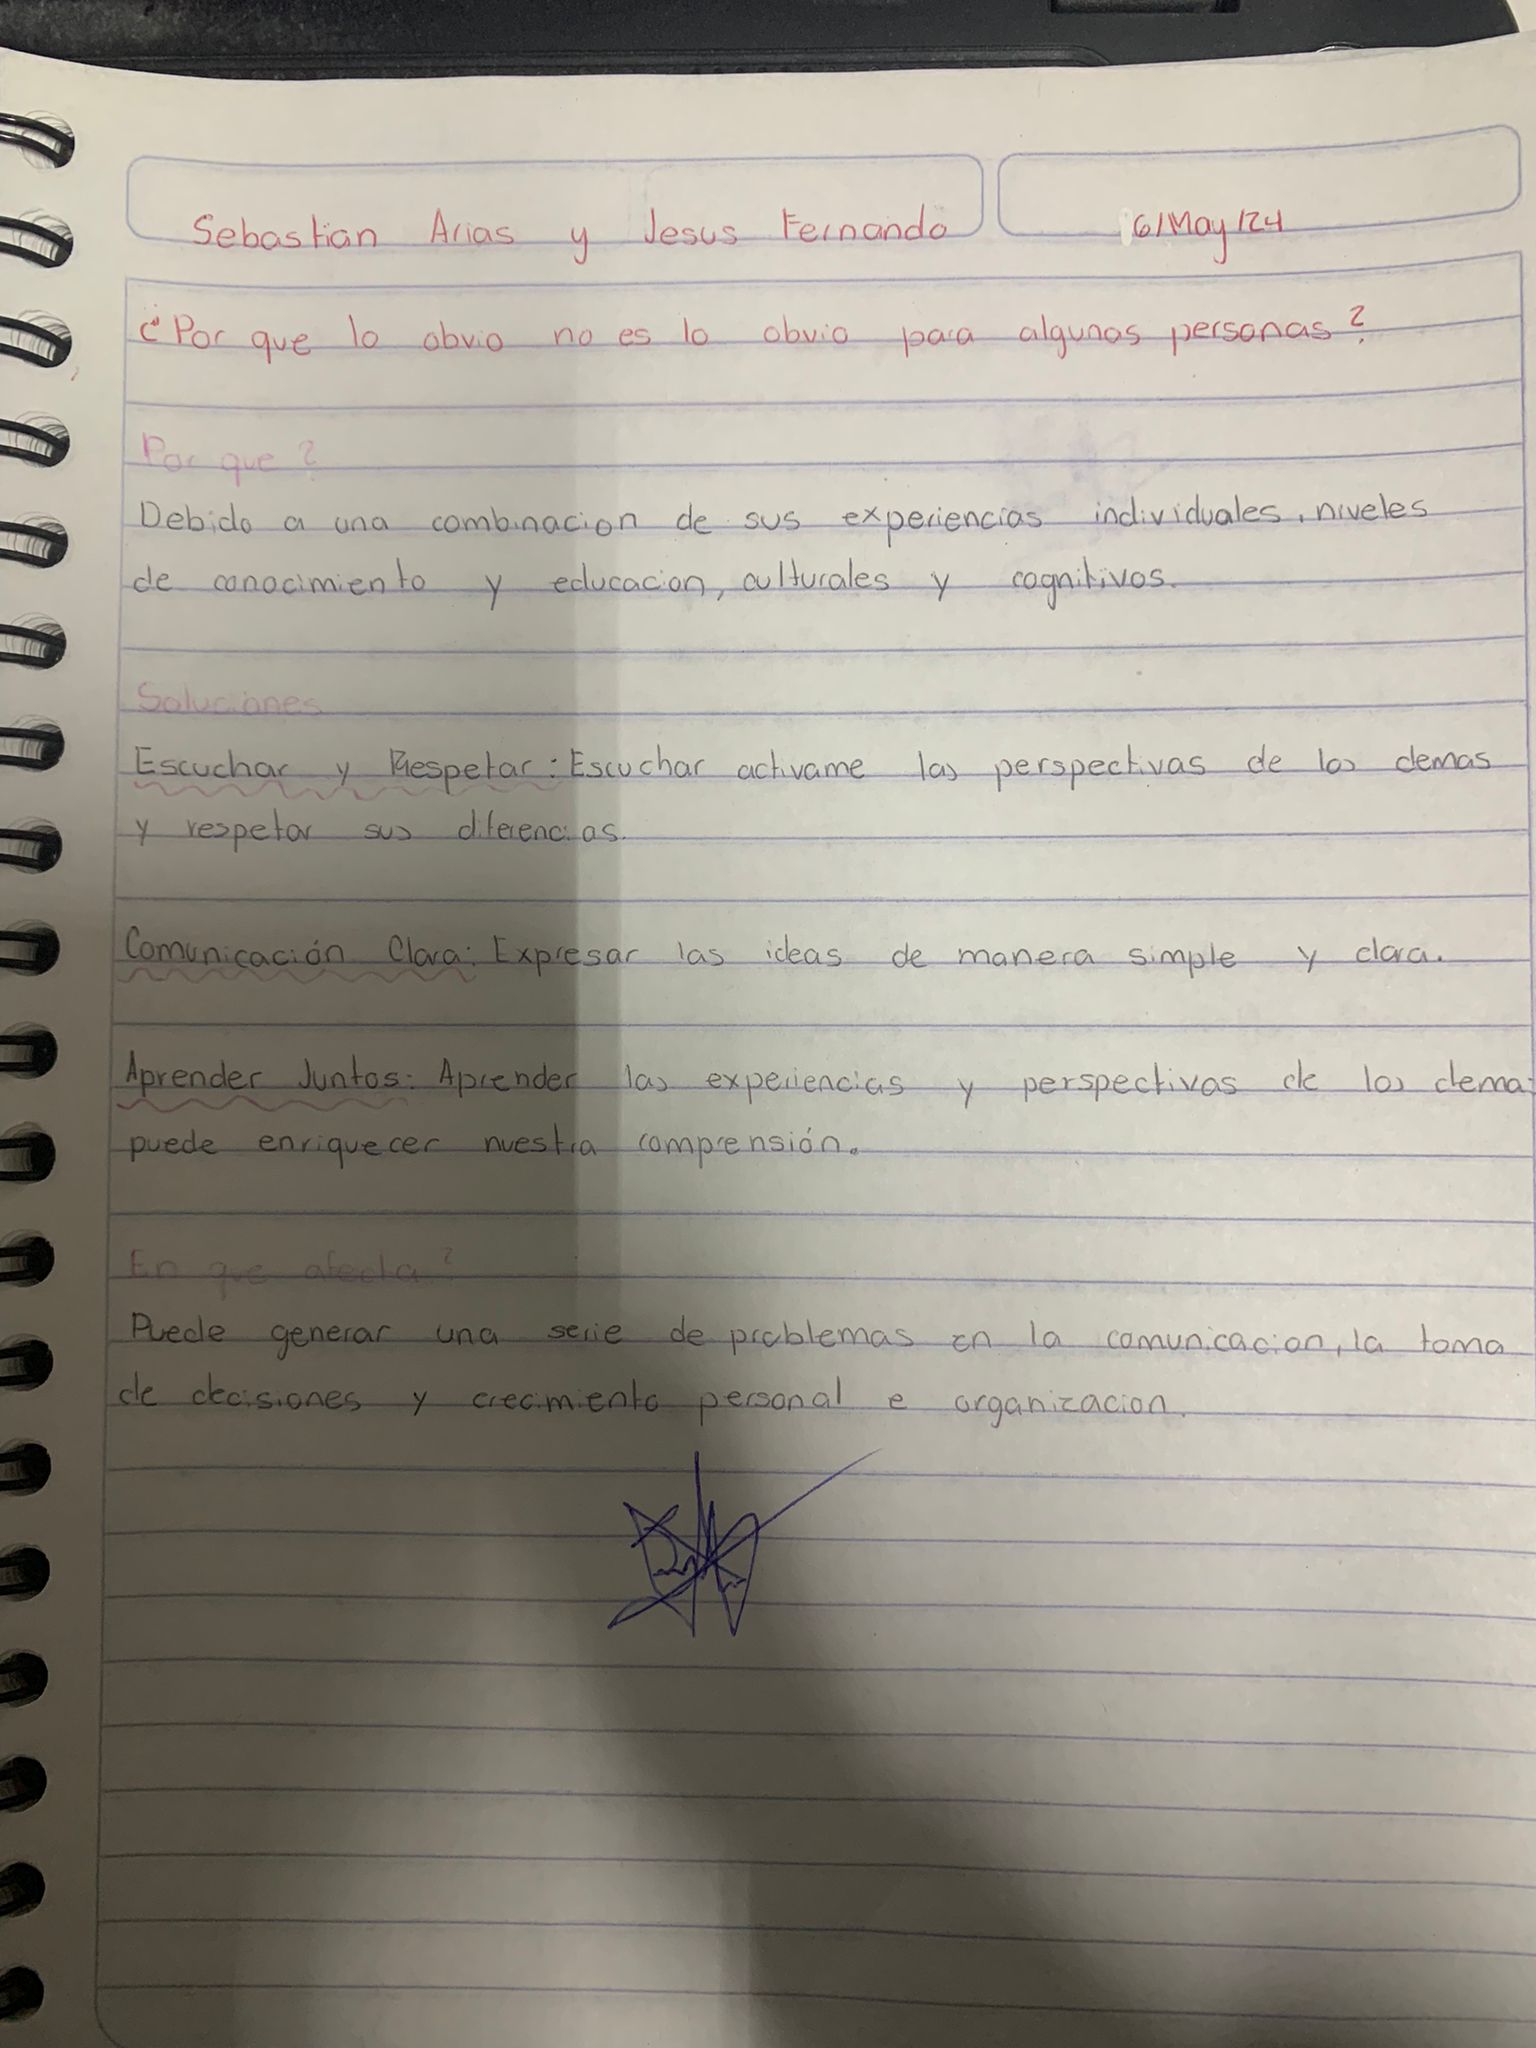 Sebastian Arias y Jesus Fernando
6/May/24
¿Por que lo obvio no es lo obvio para algunas personas?
Por que?
Debido a una combinacion de sus experiencias individuales, niveles
de conocimiento y educacion, culturales y cognitivos.
Soluciones
Escuchar y Respetar: Escuchar activame las perspectivas de los demas
y respetar sus diferencias.
Comunicación Clara: Expresar las ideas de manera simple y clara.
Aprender Juntos: Aprender las experiencias y perspectivas de los demas
puede enriquecer nuestra comprensión.
En que afecta?
Puede generar una serie de problemas en la comunicacion, la toma
de decisiones y crecimiento personal e organizacion.